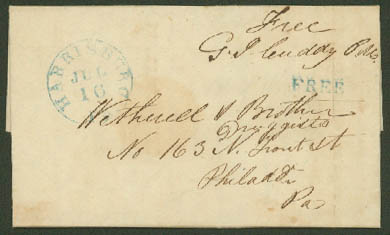 Free
HARRISBURG
JUL
16
FREE
Wetherill & Brother
Druggists
No 163 N. Front st
Philad
Pa